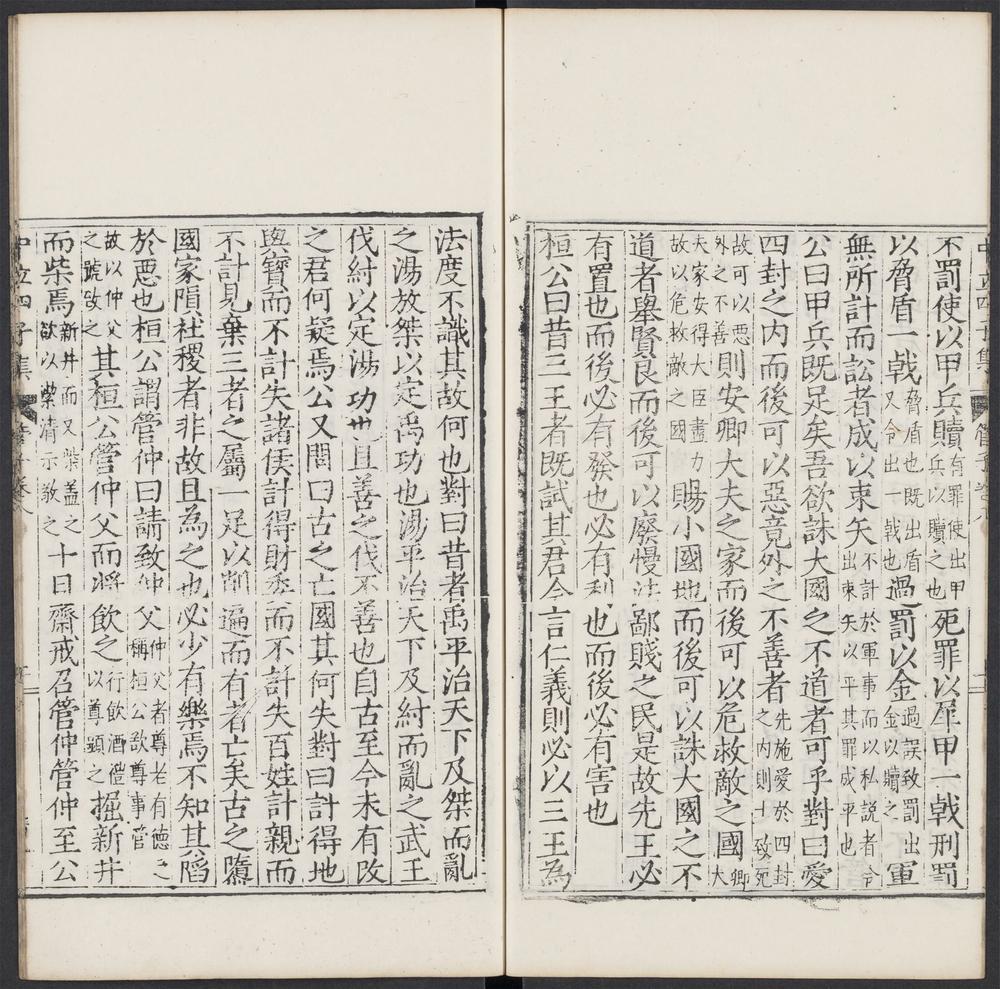 中立四子集 管子卷八 十二
不罰使以甲兵贖有罪使出甲兵以贖之也死罪以犀甲一戟刑罰
以脅盾一戟脅盾也既出盾又令出一戟也過罰以金過誤致罰出金以贖之軍
無所計而訟者成以束矢不計於軍事而以私説者令出束矢以平其罪成平也
公曰甲兵既足矣吾欲誅大國之不道者可乎對曰愛
四封之内而後可以惡竟外之不善者先施愛於四封之内則士致死
故可以惡外之不善則安卿大夫之家而後可以危救敵之國卿大
夫家安得大臣盡力故以危救敵之國賜小國地而後可以誅大國之不
道者舉賢良而後可以廢慢法鄙賤之民是故先王必
有置也而後必有發也必有利也而後必有害也
桓公曰昔三王者既試其君今言仁義則必以三王為
法度不識其故何也對曰昔者禹平治天下及桀而亂
之湯放桀以定禹功也湯平治天下及紂而亂之武王
伐紂以定湯功也且善之伐不善也自古至今未有改
之君何疑焉公又問曰古之亡國其何失對曰計得地
與寶而不計失諸侯計得財委而不計失百姓計親而
不計見棄三者之屬一足以削遍而有者亡矣古之隳
國家隕社稷者非故且為之也必少有樂焉不知其陷
於惡也桓公謂管仲曰請致仲父仲父者尊老有德之稱桓公欲尊事管
故以仲父之號敬之其桓公管仲父而將飲之行飲酒禮以尊顯之掘新井
而柴焉新井而又柴蓋之欲以絜清示敬之十日齋戒召管仲管仲至公
中立四子集 管子卷八